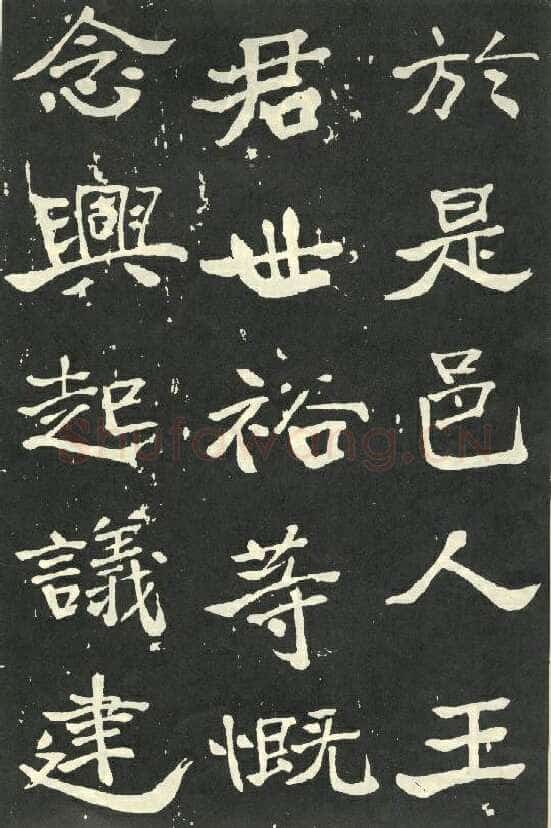 於是邑人王
君世裕等慨
念興起議建
Shufawang.CN